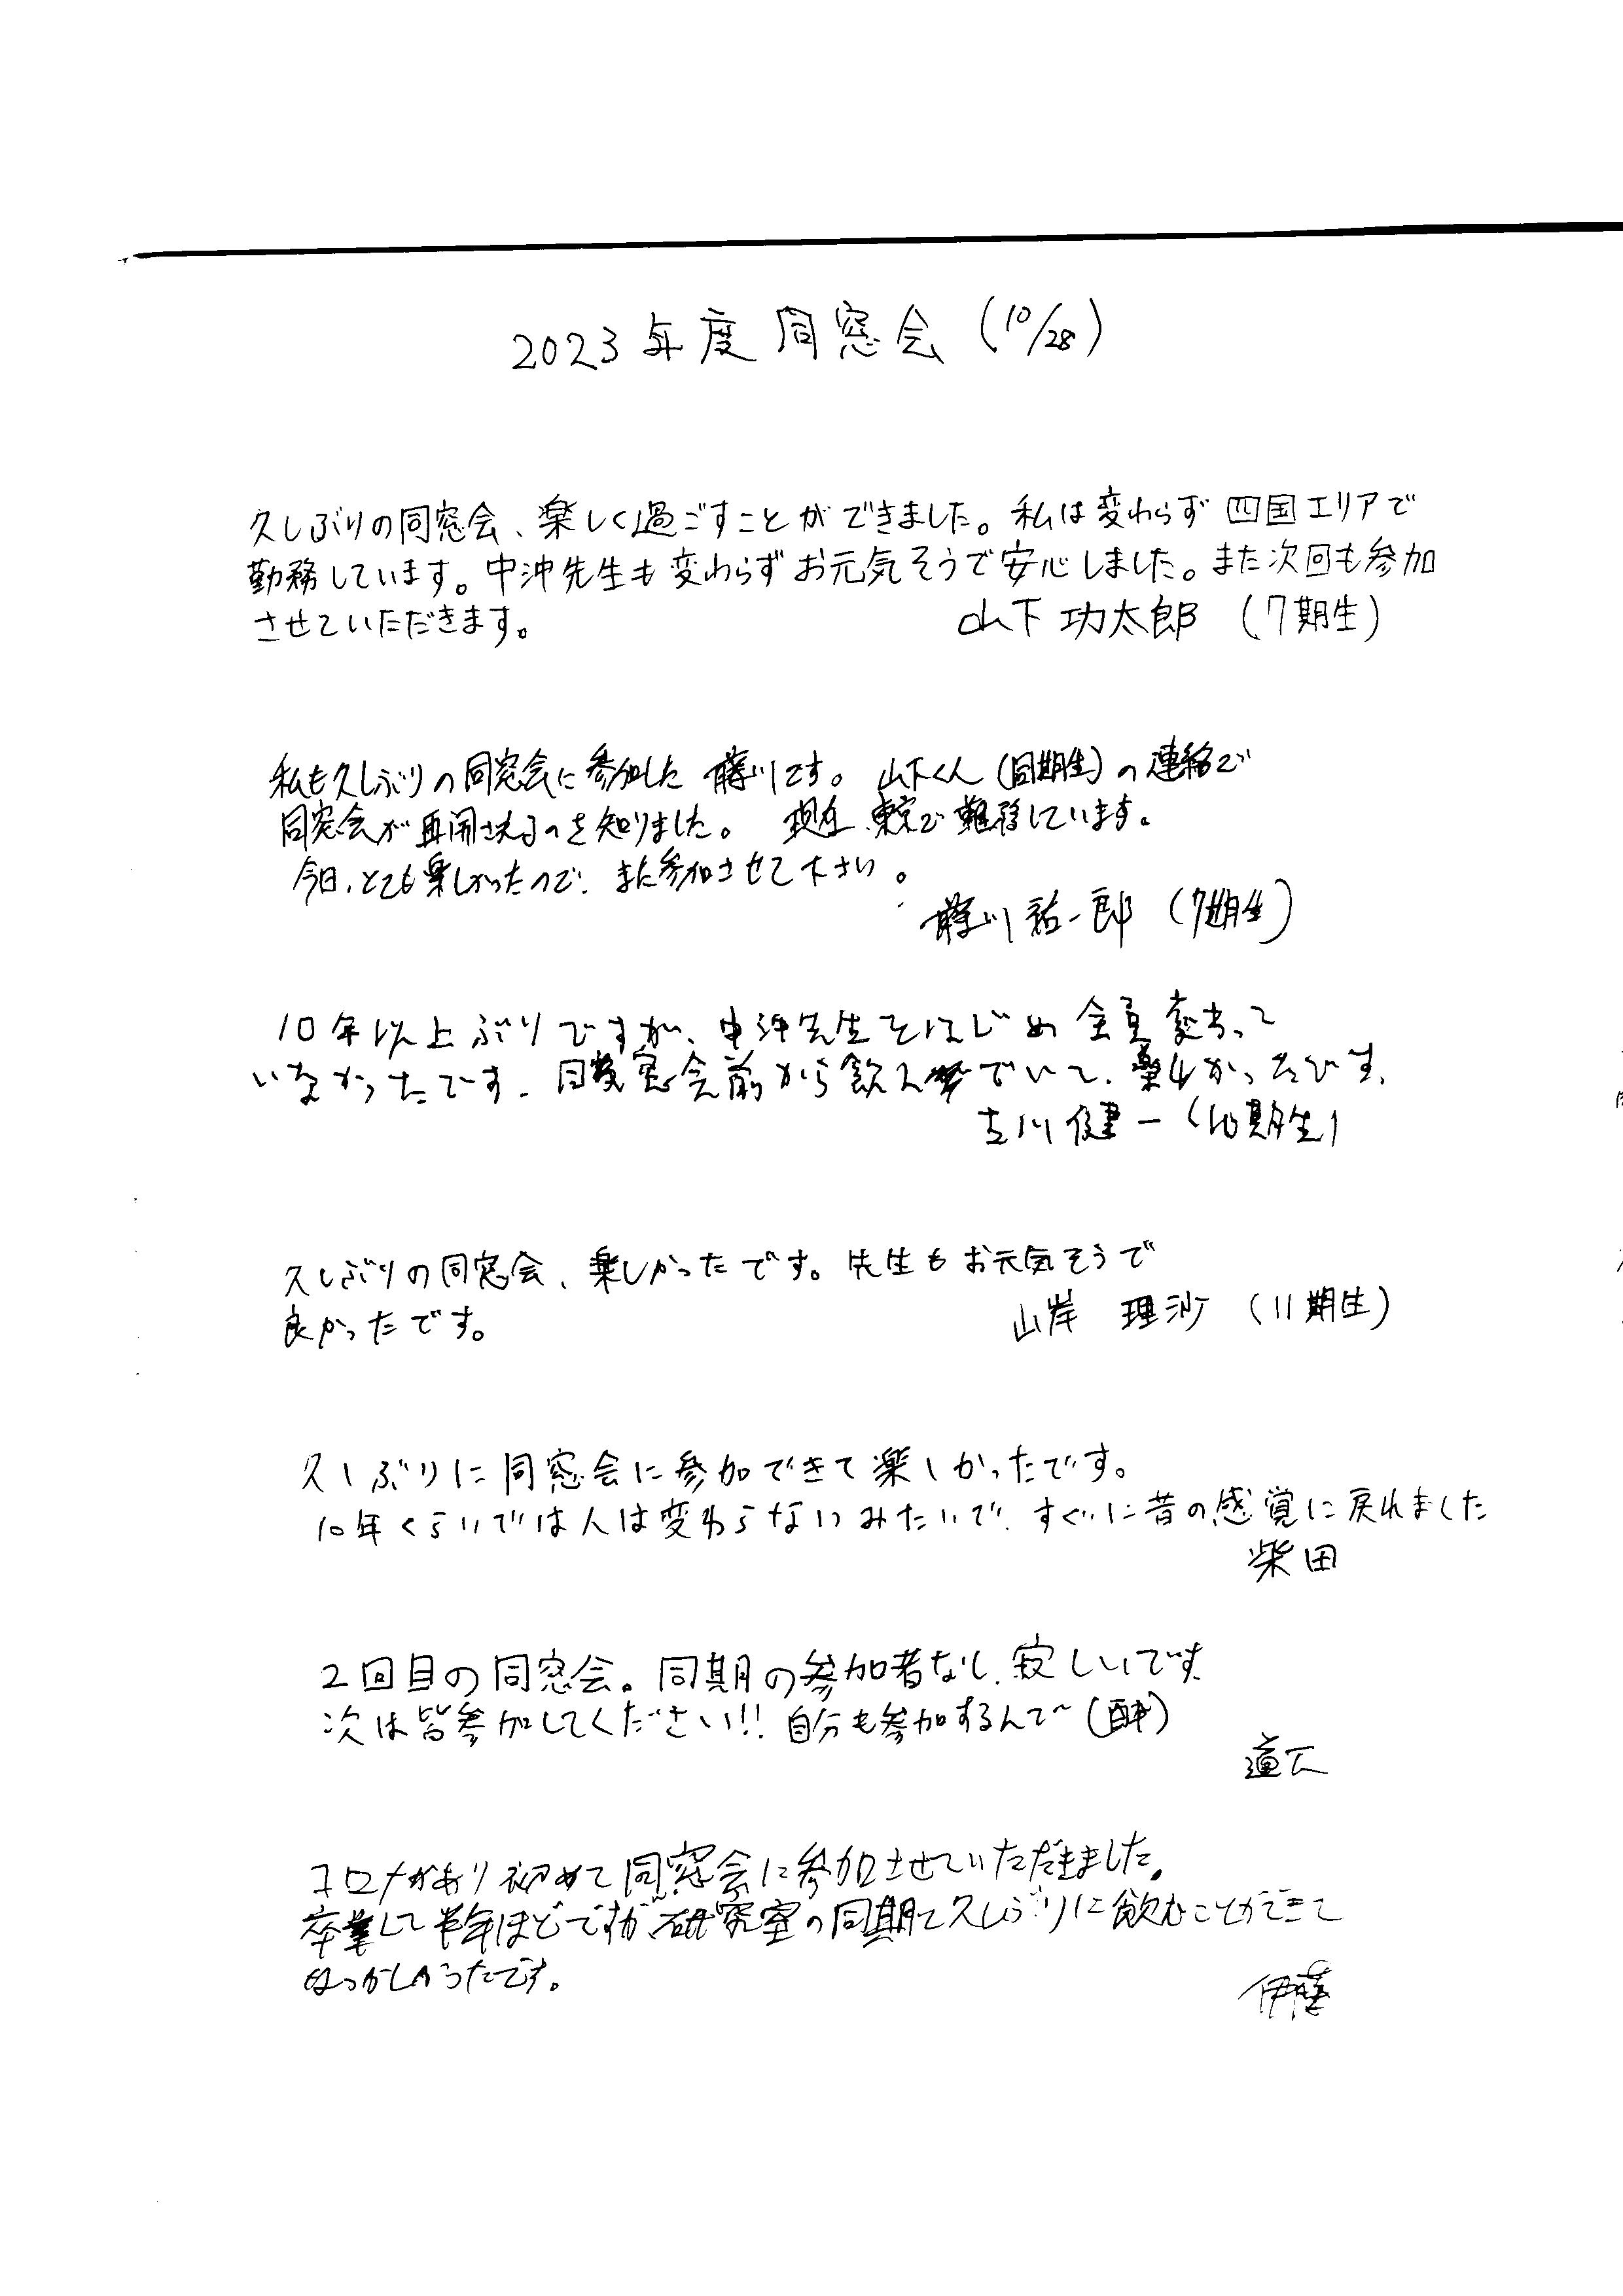 2023年度 同窓会 (10/28)
久しぶりの同窓会、楽しく過ごすことができました。私は変わらず四国エリアで
勤務しています。中沖先生も変わらずお元気そうで安心しました。また次回も参加
させていただきます。
山下 功太郎 (7期生)
私も久しぶりの同窓会に参加した 藤川です。 山下くん(同期生)の連絡で
同窓会が再開されるのを知りました。 現在、東京で勤務しています。
今日、とても楽しかったので、また参加させて下さい。
藤川 祐一郎 (7期生)
10年以上ぶりですが、中沖先生をはじめ全員変わって
いなかったです。同窓会前から飲んでいて、楽しかったです。
古川 健一 (10期生)
久しぶりの同窓会、楽しかったです。先生もお元気そうで
良かったです。
山岸 理沙 (11期生)
久しぶりに同窓会に参加できて楽しかったです。
10年くらいでは人は変わらないみたいで、すぐに昔の感覚に戻れました
柴田
2回目の同窓会。同期の参加者なし、寂しいです。
次は皆参加してください!! 自分も参加するんで~(酔)
道仁
コロナがあり初めて同窓会に参加させていただきました。
卒業して半年ほどですが、研究室の同期で久しぶりに飲むことができて
なつかしかったです。
伊藤